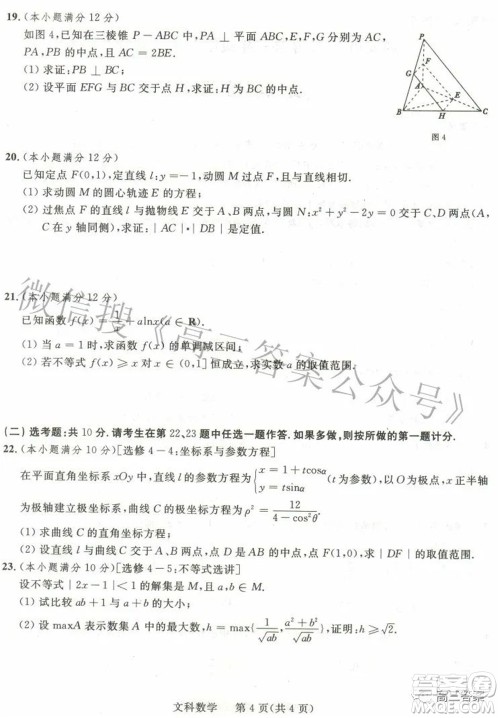 19.(本小题满分 12 分)
如图 4,已知在三棱锥 P－ABC 中,PA⊥平面 ABC,E,F,G 分别为 AC,
PA,PB 的中点,且 AC＝2BE.
(1) 求证:PB⊥BC;
(2) 设平面 EFG 与 BC 交于点 H,求证:H 为 BC 的中点.
P
F
G
A
E
B
H
C
图 4
20.(本小题满分 12 分)
已知定点 F(0,1),定直线 l:y＝－1,动圆 M 过点 F,且与直线 l 相切.
(1) 求动圆 M 的圆心轨迹 E 的方程;
(2) 过焦点 F 的直线 l 与抛物线 E 交于 A、B 两点,与圆 N:x²＋y²－2y＝0 交于 C、D 两点(A,
C 在 y 轴同侧),求证:|AC|·|DB| 是定值.
21.(本小题满分 12 分)
已知函数 f(x)＝1/x＋alnx(a∈R).
(1) 当 a＝1 时,求函数 f(x)的单调减区间;
(2) 若不等式 f(x)≥x 对 x∈(0,1]恒成立,求实数 a 的取值范围.
微信搜《高三答案公众号》
(二) 选考题:共 10 分. 请考生在第 22、23 题中任选一题作答. 如果多做,则按所做的第一题计分.
22.(本小题满分 10 分)[选修 4－4:坐标系与参数方程]
在平面直角坐标系 xOy 中,直线 l 的参数方程为{x＝1＋tcosα y＝tsinα(t 为参数),以 O 为极点,x 正半轴
为极轴建立极坐标系,曲线 C 的极坐标方程为 ρ²＝12/(4－cos²θ).
(1) 求曲线 C 的直角坐标方程;
(2) 设曲线 C 与直线 l 交于 D、F 两点,求|DF|的取值范围.
23.(本小题满分 10 分)[选修 4－5:不等式选讲]
设不等式|2x－1|＜1 的解集是 M,a,b∈M.
(1) 试比较 ab＋1 与 a＋b 的大小;
(2) 设 maxA 表示数集 A 中的最大数,h＝max{1/√ab, (a²＋b²)/√ab, 1/√b},求证:h≥√2.
文科数学 第 4 页(共 4 页)
高三答案